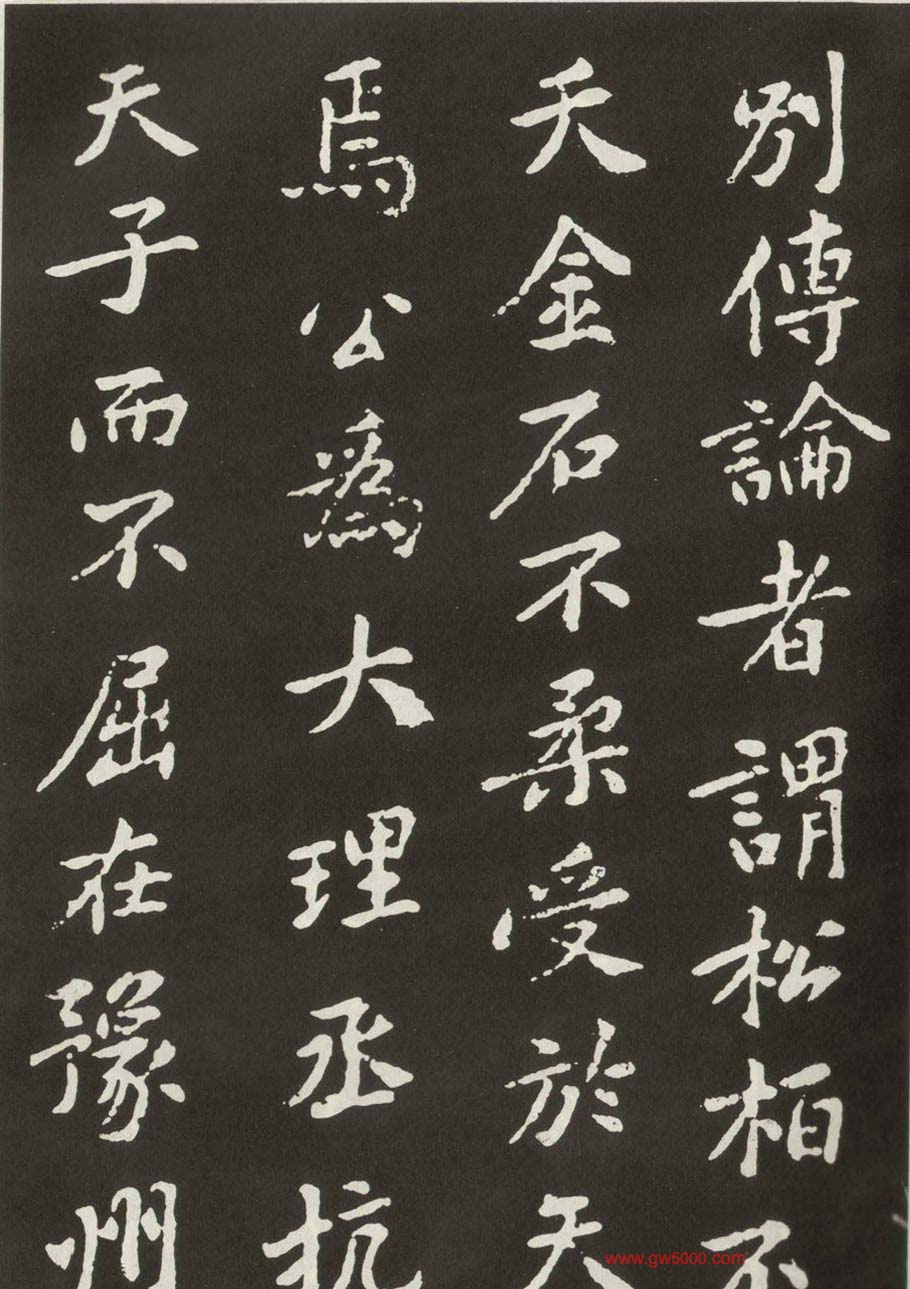 別傳論者謂松柏不
夭金石不柔受於天
焉公為大理丞抗
天子而不屈在豫州
www.gw5000.com